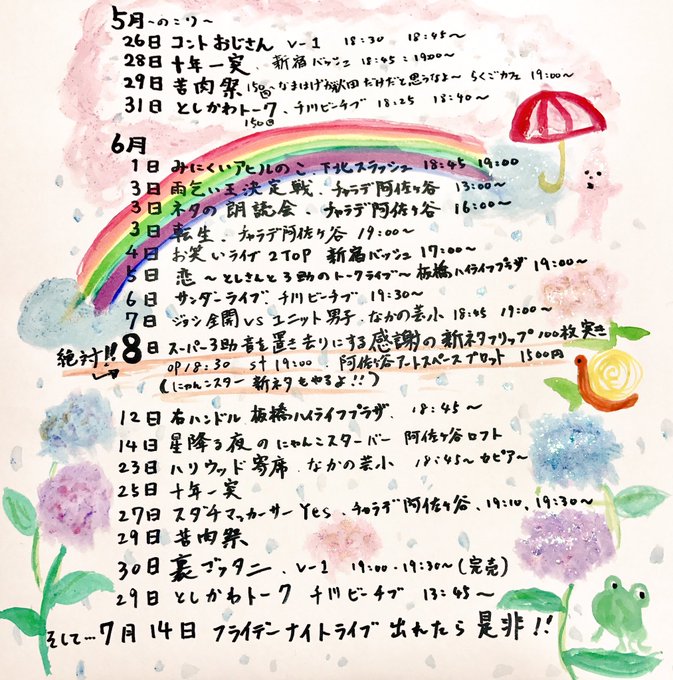 5月〜のこり〜
26日 コントおじさん V-1 18:30 18:45〜
28日 十年一実、新宿バッシュ 18:45 19:00〜
29日 苦肉祭 150 〜なまはげが秋田だけだと思うなよ〜 らくごカフェ 19:00〜
31日 としかわトーク、千川ビーチブ 18:25 18:40〜
150
6月
1日 みにくいアヒルのこ、下北スラッシュ 18:45 19:00
3日 雨乞い王決定戦、チャラデ阿佐ヶ谷 13:00〜
3日 ネタの朗読会、チャラデ阿佐ヶ谷 16:00〜
3日 転生、チャラデ阿佐ヶ谷 19:00〜
4日 お笑いライブ2TOP 新宿バッシュ 17:00〜
5日 恋 〜としさんと3助のトークライブ〜 板橋ハイライフプラザ 19:00〜
6日 サンダーライブ、千川ビーチブ 19:30〜
7日 ジョン全開VSユニット男子、なかの芸小 18:45 19:00〜
絶対!! 8日 スーパー3助音を置き去りにする感謝の新ネタフリップ100枚突き
op18:30 st19:00 阿佐ヶ谷アートスペースプロット 1500円
(にゃんこスター新ネタもやるよ!!)
12日 右ハンドル 板橋ハイライフプラザ、18:45〜
14日 星降る夜のにゃんこスターバー 阿佐ヶ谷ロフト
23日 ハリウッド寄席、なかの芸小 18:45〜 カピアー
25日 十年一実
27日 スダチマッカーサーYes、チャラデ阿佐ヶ谷、19:10、19:30〜
29日 苦肉祭
30日 裏ゴッタニ、V-1 19:00・19:30〜(完売)
29日 としかわトーク 千川ビーチブ 13:45〜
そして…7月14日 フライデーナイトライブ 出れたら是非!!